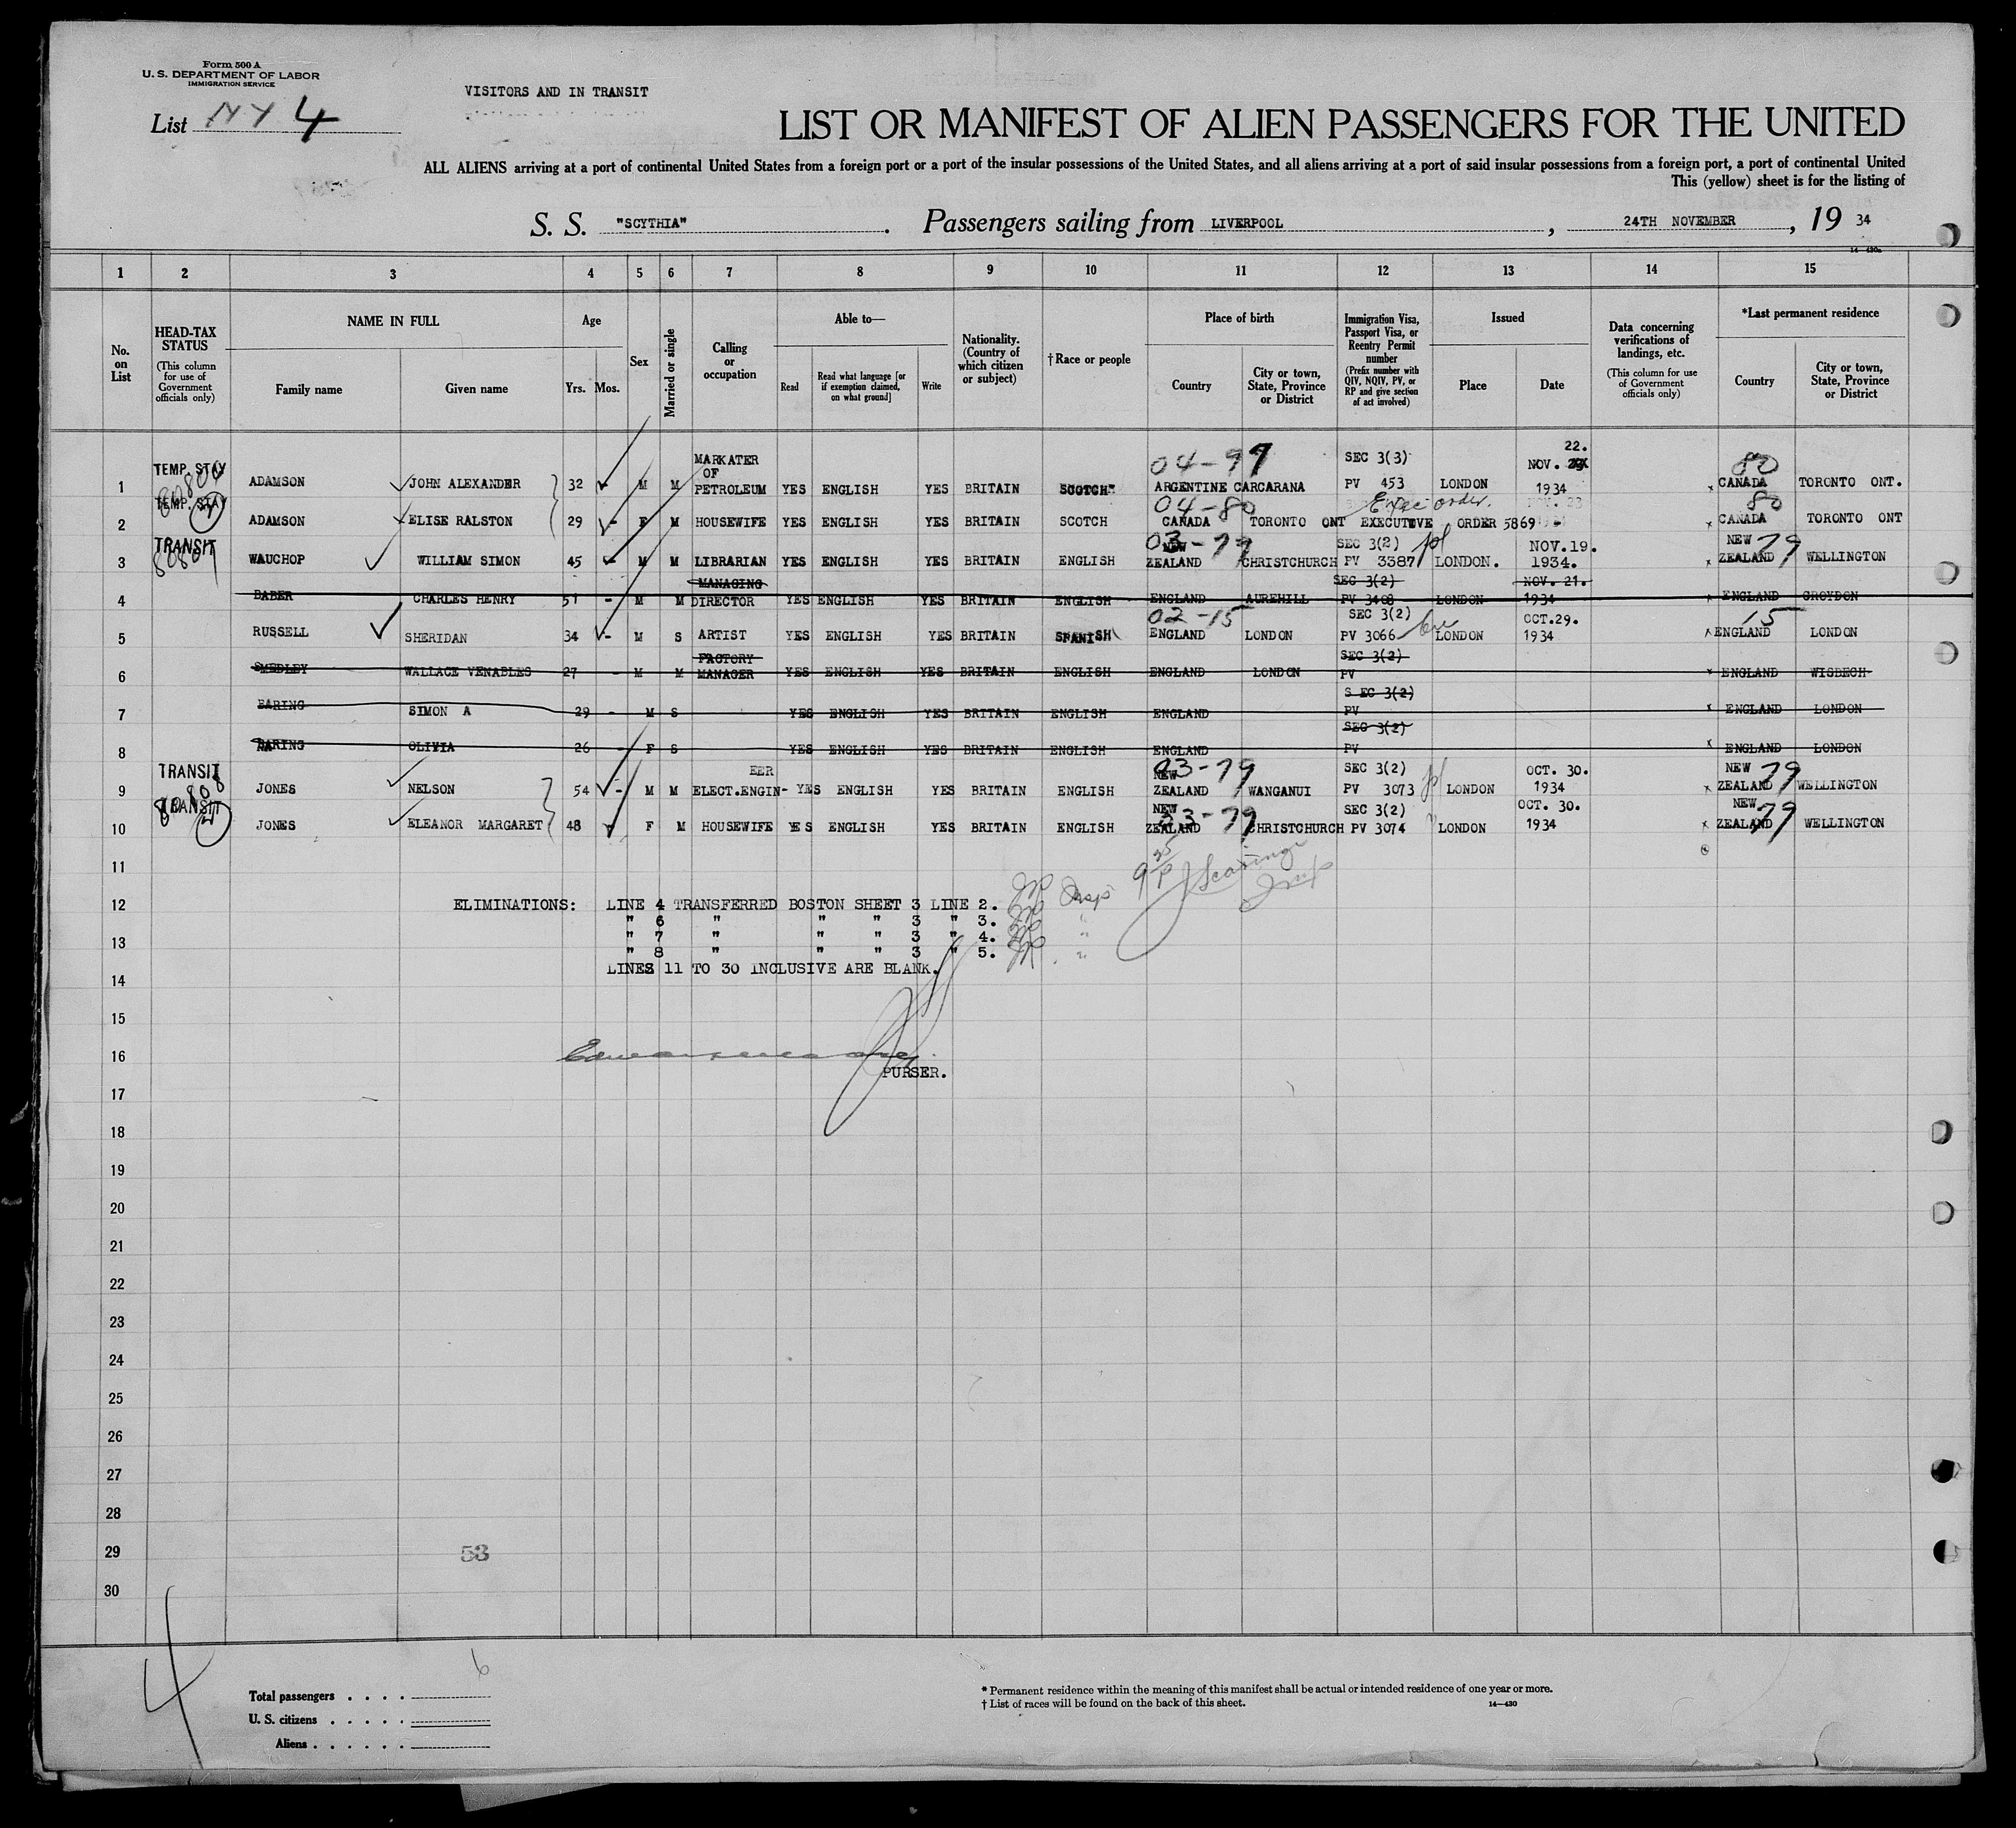 Form 500 A
U. S. DEPARTMENT OF LABOR
IMMIGRATION SERVICE
List NY 4
VISITORS AND IN TRANSIT
LIST OR MANIFEST OF ALIEN PASSENGERS FOR THE UNITED
ALL ALIENS arriving at a port of continental United States from a foreign port or a port of the insular possessions of the United States, and all aliens arriving at a port of said insular possessions from a foreign port, a port of continental United
This (yellow) sheet is for the listing of
S. S. "SCYTHIA". Passengers sailing from LIVERPOOL, 24TH NOVEMBER, 19 34
14—430a
1 2 3 4 5 6 7 8 9 10 11 12 13 14 15
No. on List
HEAD-TAX STATUS
(This column for use of Government officials only)
NAME IN FULL
Family name Given name
Age
Yrs. Mos.
Sex
Married or single
Calling or occupation
Able to—
Read
Read what language [or if exemption claimed, on what ground]
Write
Nationality. (Country of which citizen or subject)
†Race or people
Place of birth
Country
City or town, State, Province or District
Immigration Visa, Passport Visa, or Reentry Permit number
(Prefix number with QIV, NQIV, PV, or RP and give section of act involved)
Issued
Place Date
Data concerning verifications of landings, etc.
(This column for use of Government officials only)
*Last permanent residence
Country
City or town, State, Province or District
1 TEMP. STAY 80804 ADAMSON JOHN ALEXANDER 32 M M MARKATER OF PETROLEUM YES ENGLISH YES BRITAIN SCOTCH 04-77 ARGENTINE CARCARANA SEC 3(3) PV 453 LONDON NOV. 22. 1934 80 CANADA TORONTO ONT.
2 TEMP. STAY ADAMSON ELISE RALSTON 29 - F M HOUSEWIFE YES ENGLISH YES BRITAIN SCOTCH 04-80 CANADA TORONTO ONT Exec order. EXECUTIVE ORDER 5869 80 CANADA TORONTO ONT
3 TRANSIT 80807 WAUCHOP WILLIAM SIMON 45 - M M LIBRARIAN YES ENGLISH YES BRITAIN ENGLISH 03-79 NEW ZEALAND CHRISTCHURCH SEC 3(2) PV 3387 LONDON. NOV.19. 1934. NEW ZEALAND 79 WELLINGTON
4 BABER CHARLES HENRY 51 - M M MANAGING DIRECTOR YES ENGLISH YES BRITAIN ENGLISH ENGLAND AUREHILL SEC 3(2) PV 3408 LONDON NOV. 21. 1934 ENGLAND CROYDON
5 RUSSELL SHERIDAN 34 - M S ARTIST YES ENGLISH YES BRITAIN SPANISH 02-15 ENGLAND LONDON SEC 3(2) PV 3066 LONDON OCT.29. 1934 15 ENGLAND LONDON
6 SMEDLEY WALLACE VENABLES 27 - M M FACTORY MANAGER YES ENGLISH YES BRITAIN ENGLISH ENGLAND LONDON SEC 3(2) PV ENGLAND WISBECH
7 BARING SIMON A 29 - M S YES ENGLISH YES BRITAIN ENGLISH ENGLAND S EC 3(2) PV ENGLAND LONDON
8 BARING OLIVIA 26 - F S YES ENGLISH YES BRITAIN ENGLISH ENGLAND SEC 3(2) PV ENGLAND LONDON
9 TRANSIT 80808 JONES NELSON 54 - M M ELECT.ENGIN-EER YES ENGLISH YES BRITAIN ENGLISH 03-79 NEW ZEALAND WANGANUI SEC 3(2) PV 3073 LONDON OCT. 30. 1934 NEW ZEALAND 79 WELLINGTON
10 TRANSIT JONES ELEANOR MARGARET 48 - F M HOUSEWIFE YES ENGLISH YES BRITAIN ENGLISH 03-79 NEW ZEALAND CHRISTCHURCH SEC 3(2) PV 3074 LONDON OCT. 30. 1934 NEW ZEALAND 79 WELLINGTON
11
12 ELIMINATIONS: LINE 4 TRANSFERRED BOSTON SHEET 3 LINE 2.
" 6 " " " 3 " 3.
13 " 7 " " " 3 " 4.
" 8 " " " 3 " 5.
LINES 11 TO 30 INCLUSIVE ARE BLANK.
14
15
16
PURSER.
17
18
19
20
21
22
23
24
25
26
27
28
29 53
30
4
6
Total passengers
U. S. citizens
Aliens
* Permanent residence within the meaning of this manifest shall be actual or intended residence of one year or more.
† List of races will be found on the back of this sheet. 14—430